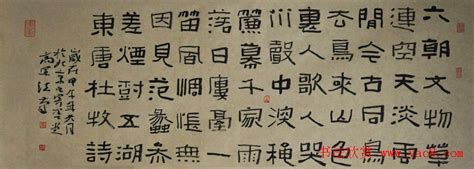 六朝文物草
連空天淡雲
閒今古同鳥
去鳥來山色
裏人歌人哭
水聲中深穐
簾幕千家雨
落日樓臺一
笛風惆悵無
因見范蠡參
差煙樹五湖
東唐杜牧詩
书法欣赏 www.yac8.com